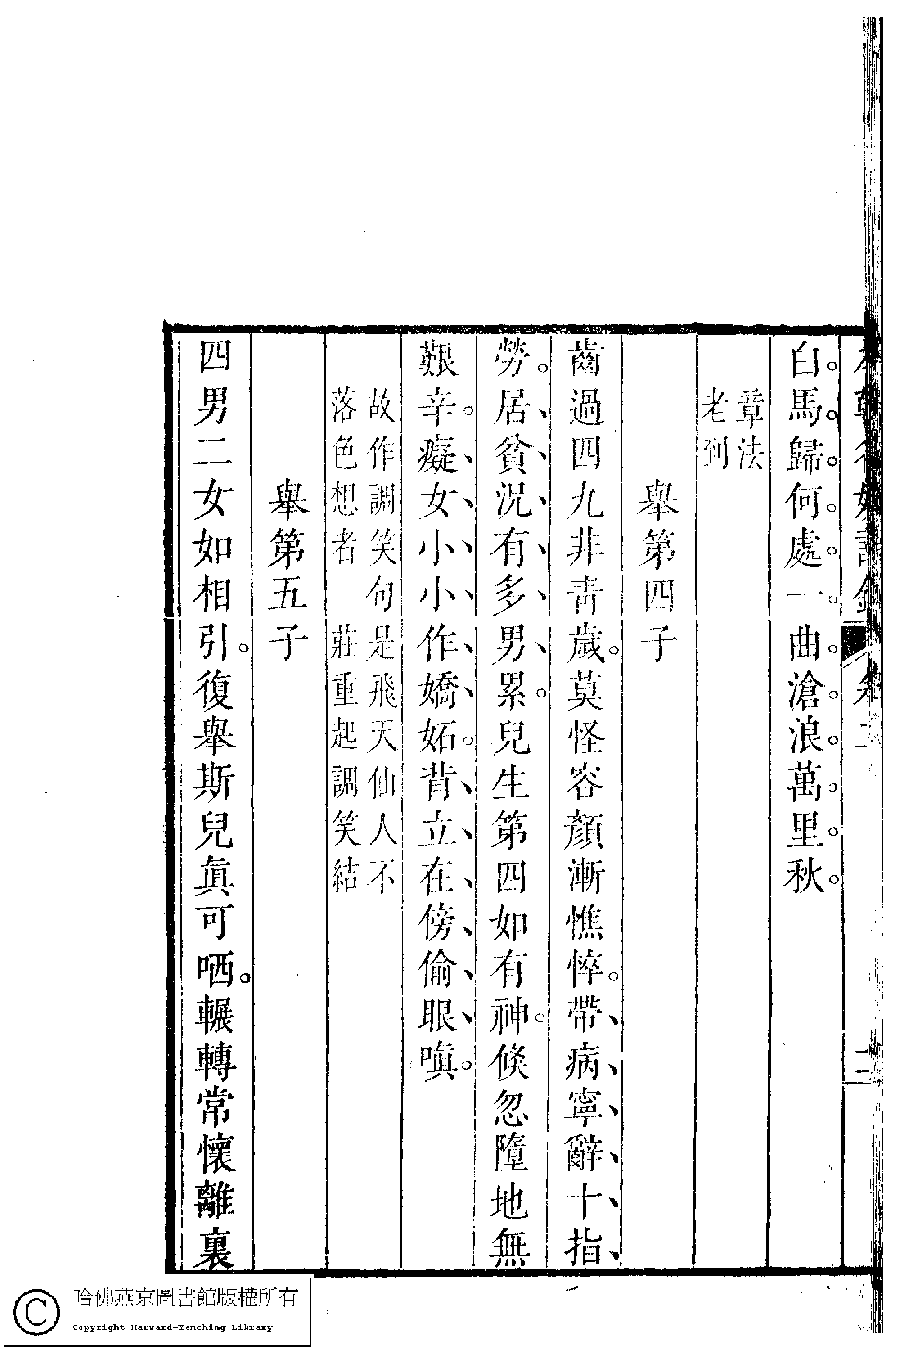 白馬歸何處一曲滄浪萬里秋
章法
老到
舉第四子
齒過四九非青歲莫怪容顏漸憔悴帶病寧辭十指
勞居貧況有多男累兒生第四如有神倏忽墮地無
艱辛癡女小小作嬌妬背立在傍偷眼嗔
故作調笑句是飛天仙人不
落色想者 莊重起調笑結
舉第五子
四男二女如相引復舉斯兒眞可哂輾轉常懷離裏
哈佛燕京圖書館版權所有
Copyright Harvard-Yenching Library